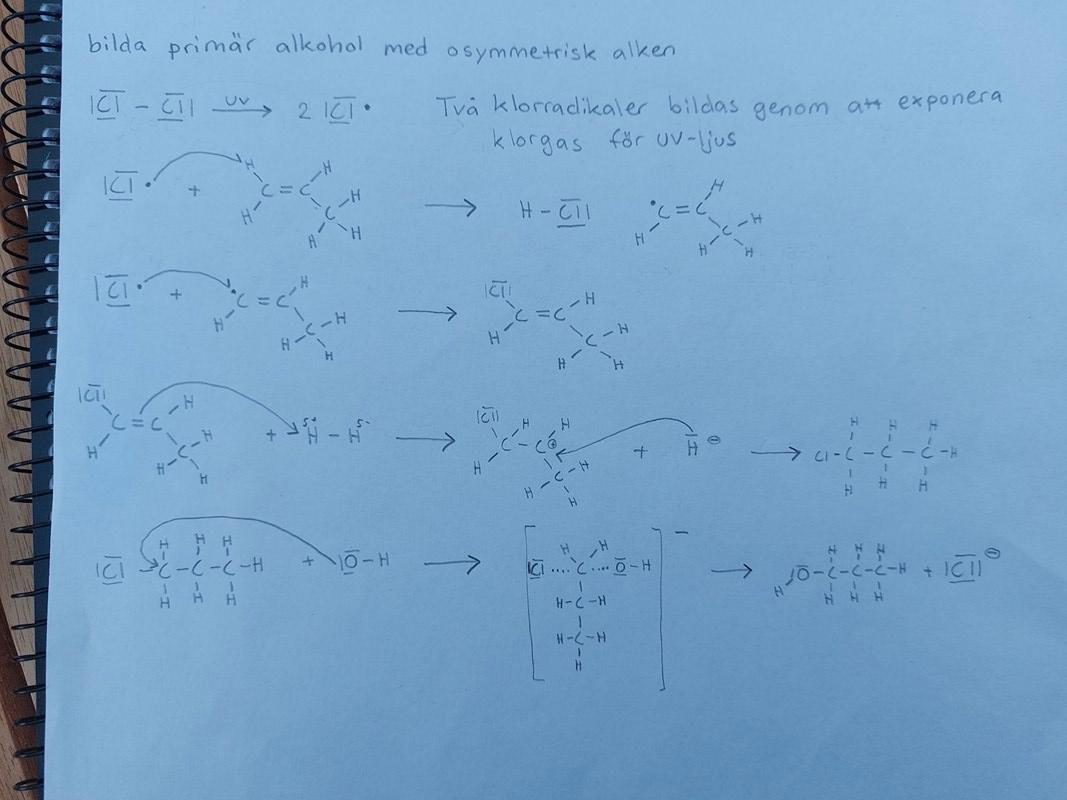 bilda primär alkohol med osymmetrisk alken
|C̅l̲| – |C̅l̲| UV → 2 |C̅l̲ • Två klorradikaler bildas genom att exponera
klorgas för UV-ljus
|C̅l̲ • + H H C = C H C H H H → H – C̅l̲| H • C = C H C H H H
|C̅l̲ • + • C = C H H C H H H → |C̅l| C = C H H C H H H
|C̅l| C = C H H C H H H + δ+ H – H δ- → |C̅l| H H C – C ⊕ H C H H H + H̅ ⊖ → Cl – C – C – C – H H H H H H H
|C̅l̲ C – C – C – H H H H H H H + |O̅ – H → [ |C̅l̲ .... C .... O̲̅ – H H H H – C – H H – C – H H ] – → H |O̅ – C – C – C – H H H H H H H + |C̅l̲| ⊖